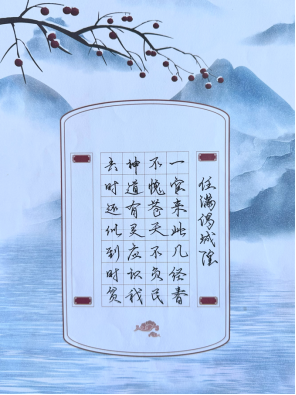 任满谒城隍
一官来此几经春
不愧苍天不负民
神道有灵应识我
去时还似到时贫